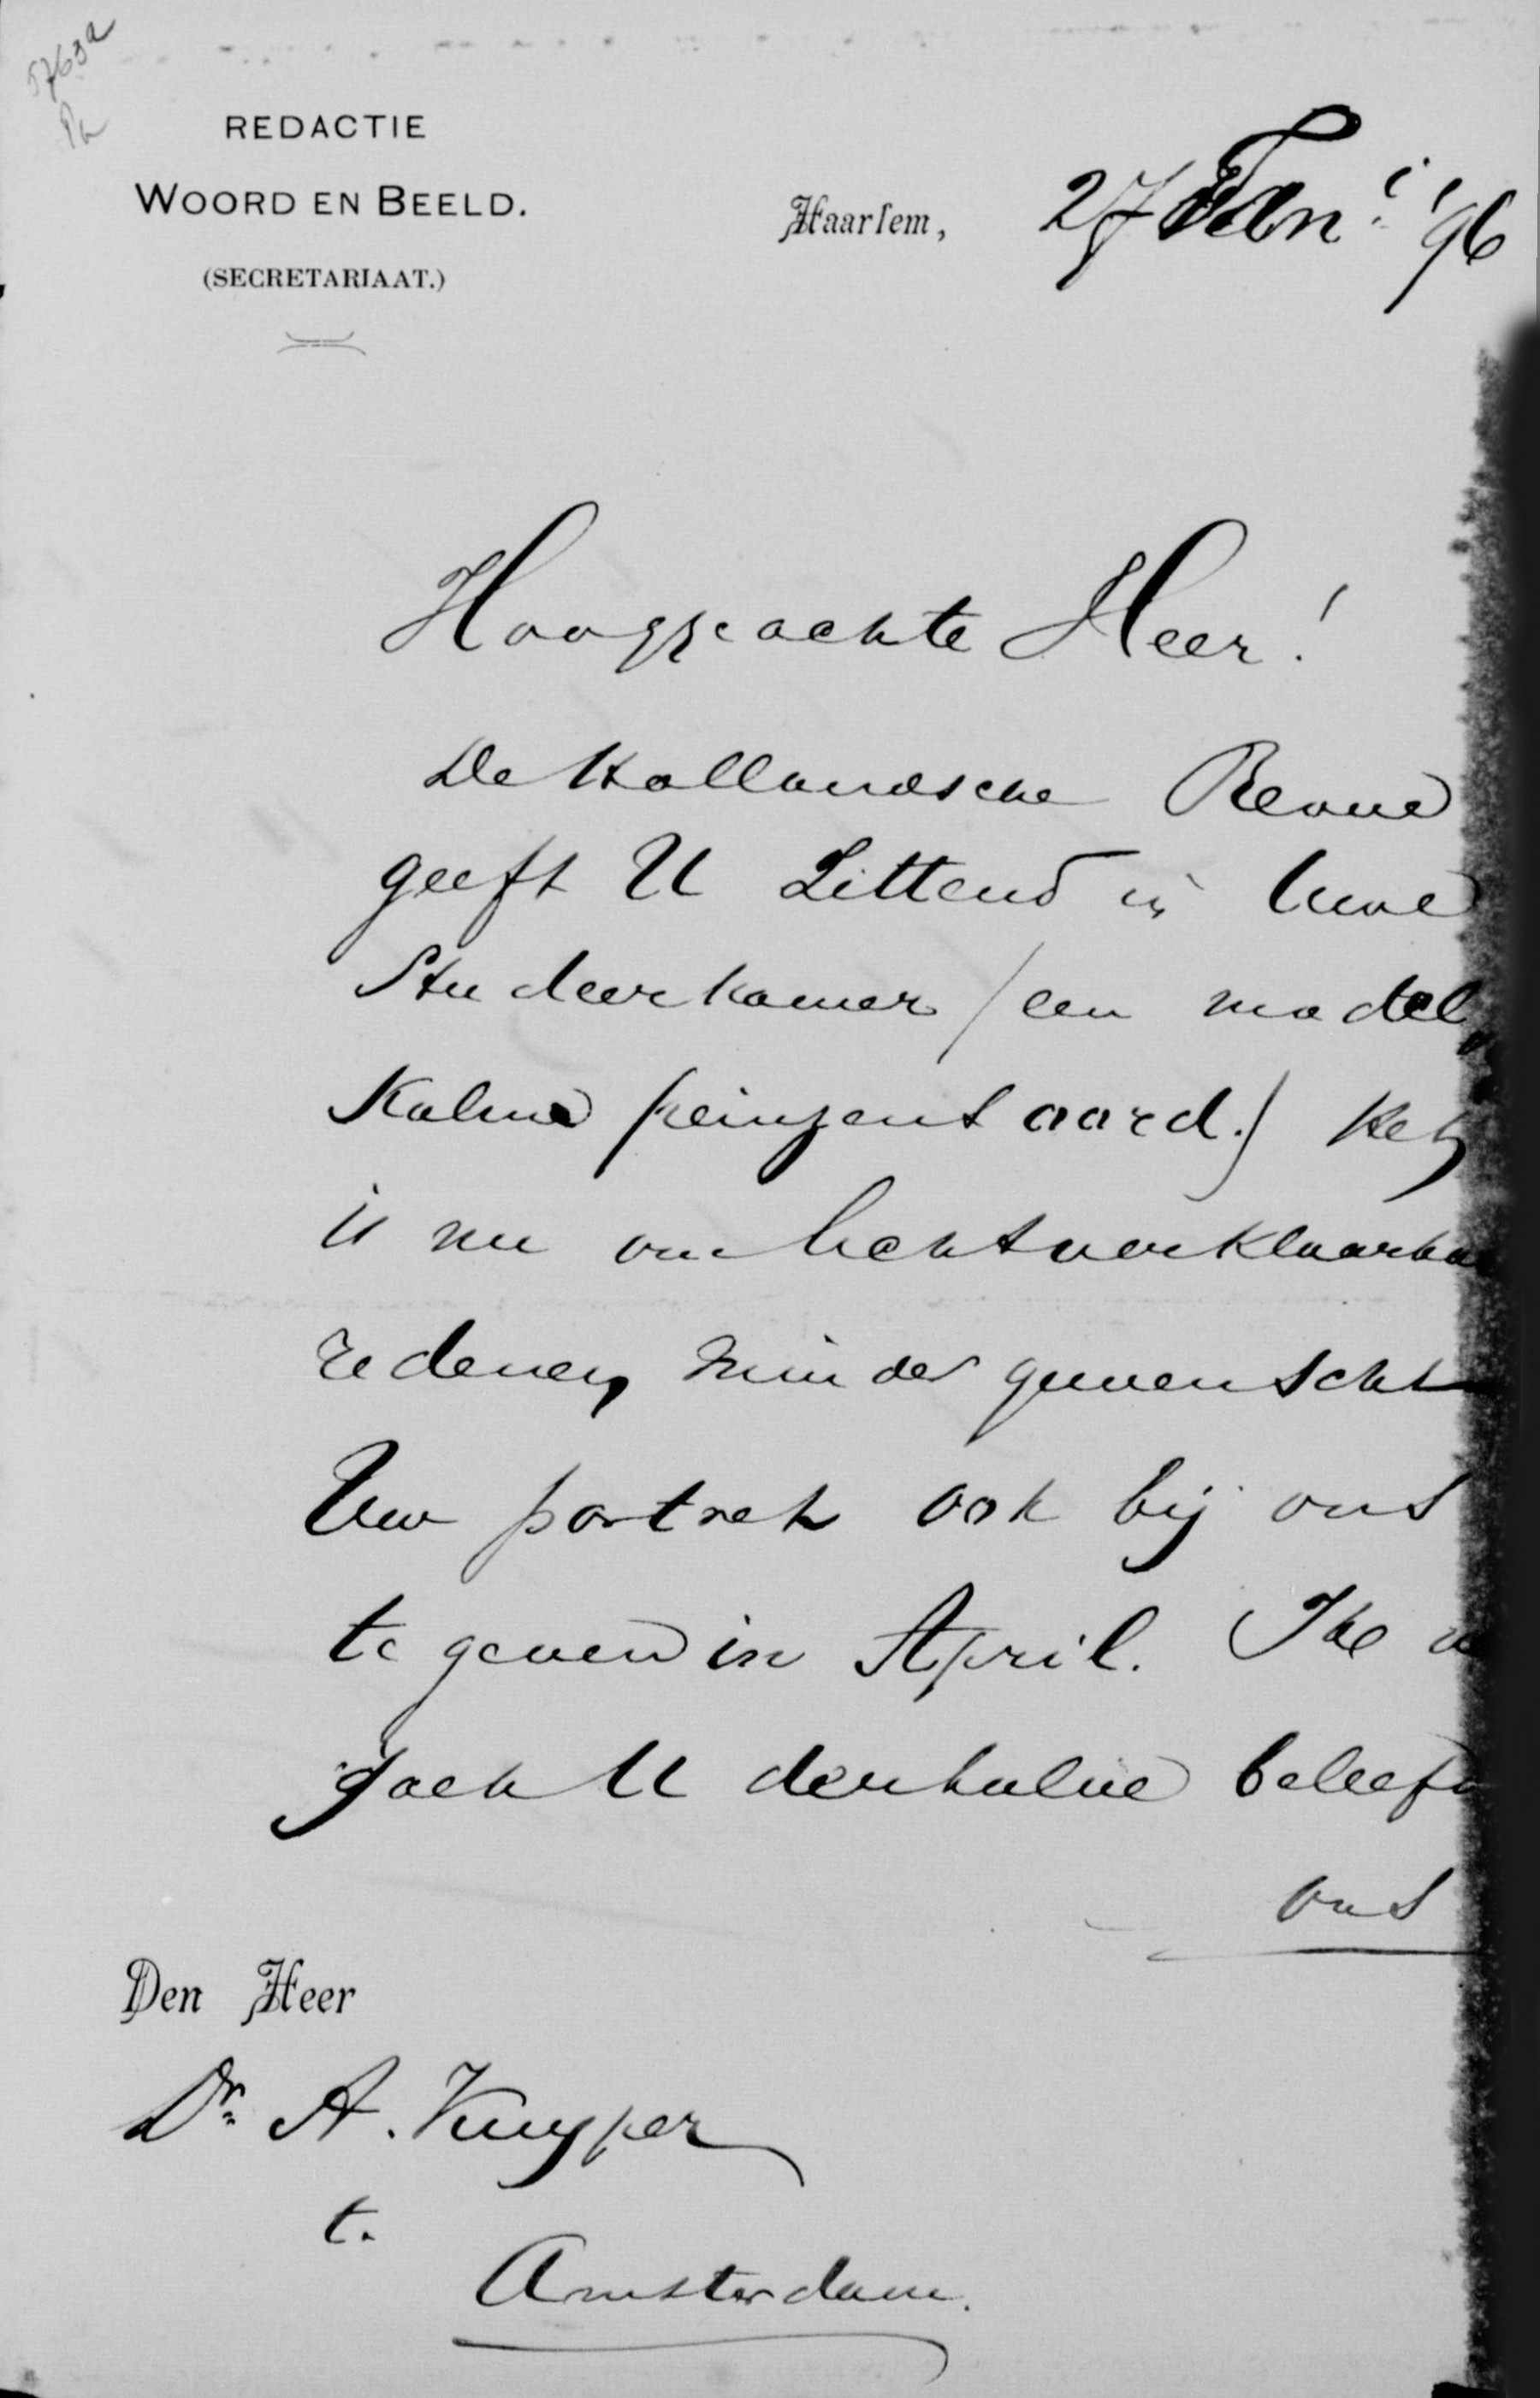 5763a
REDACTIE
WOORD EN BEELD.
(SECRETARIAAT.)
Haarlem, 27 Jan: '96
Hooggeachte Heer!
De Hollandsche Revue
geeft U zittend in Uwe
Studeerkamer (een model
Kalme peinzensaard.) Het
is nu om lichtverklaarba
redenen minder gewenscht
Uw portret ook bij ons
te geven in April. Ik
U derhalve beleefd
ons
Den Heer
Dr. A. Kuyper
t.
Amsterdam.